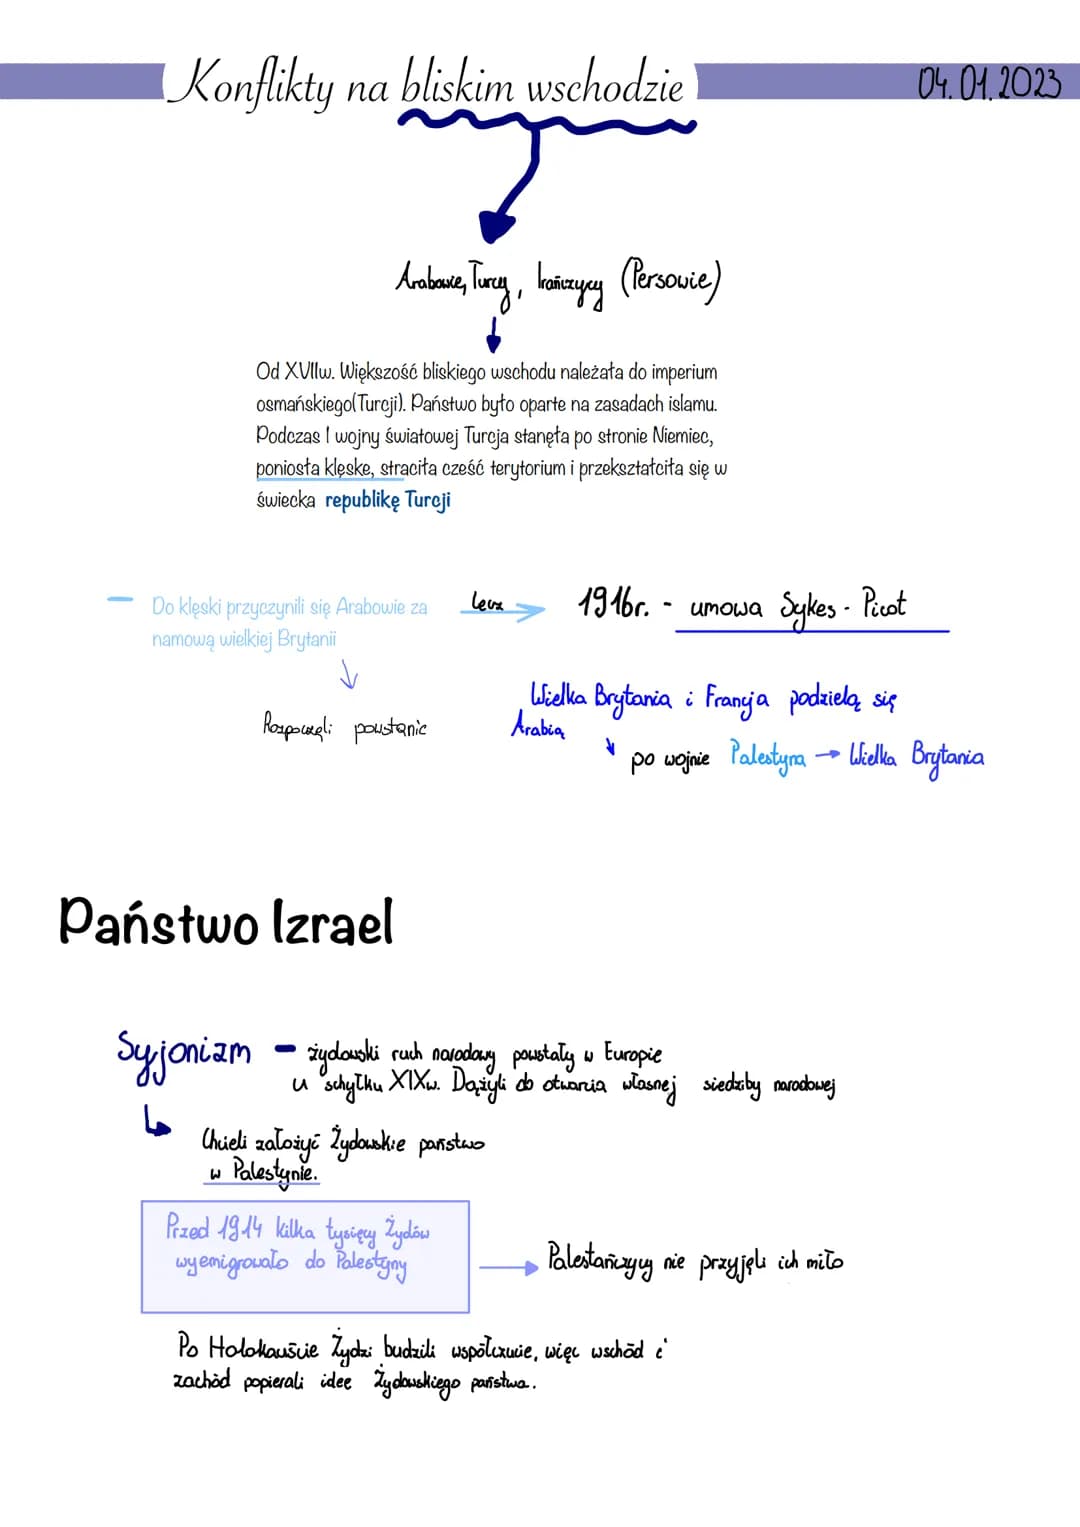 Konflikty na bliskim wschodzie
04.01.2023
Arabowie, Turcy, Irańczycy (Persowie)
Od XVIIw. Większość bliskiego wschodu należała do imperium
osmańskiego(Turcji). Państwo było oparte na zasadach islamu.
Podczas I wojny światowej Turcja stanęła po stronie Niemiec,
poniosła klęske, straciła cześć terytorium i przekształciła się w
świecka republikę Turcji
Do klęski przyczynili się Arabowie za
namową wielkiej Brytanii
lecz
1916r. - umowa Sykes - Picot
Rozpoczęli powstanie
Wielka Brytania i Francja podzielą się
Arabią
po wojnie Palestyna → Wielka Brytania
Państwo Izrael
Syjonizm - żydowski ruch narodowy powstały w Europie
u schyłku XIXw. Dążyli do otwarcia własnej siedziby narodowej
Chcieli założyć Żydowskie państwo
w Palestynie.
Przed 1914 kilka tysięcy Żydów
wyemigrowało do Palestyny
Palestańczycy nie przyjęli ich miło
Po Holokauście Żydzi budzili współczucie, więc wschód i
zachód popierali idee Żydowskiego państwa.